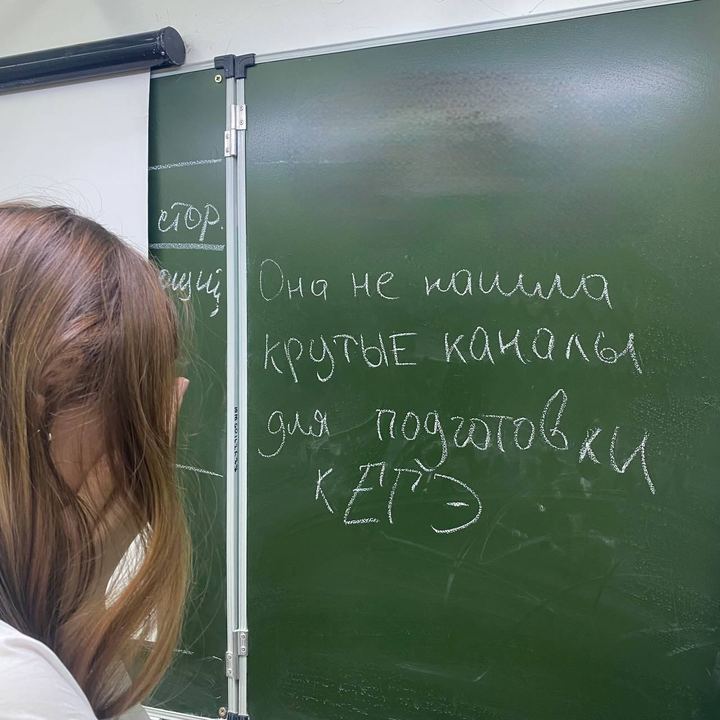 стор.
Она не нашла
крутые каналы
для подготовки
к ЕГЭ